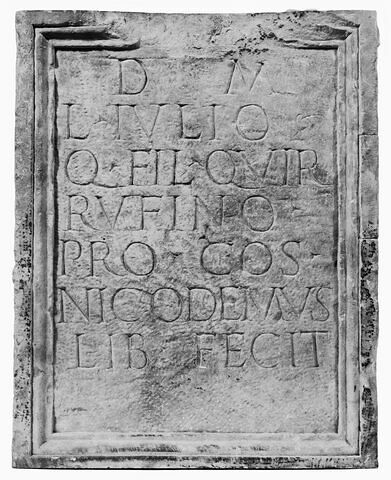 D M
L · IVLIO ·
Q · FIL · QVIR
RVFINO
PRO · COS ·
NICODEMVS
LIB FECIT